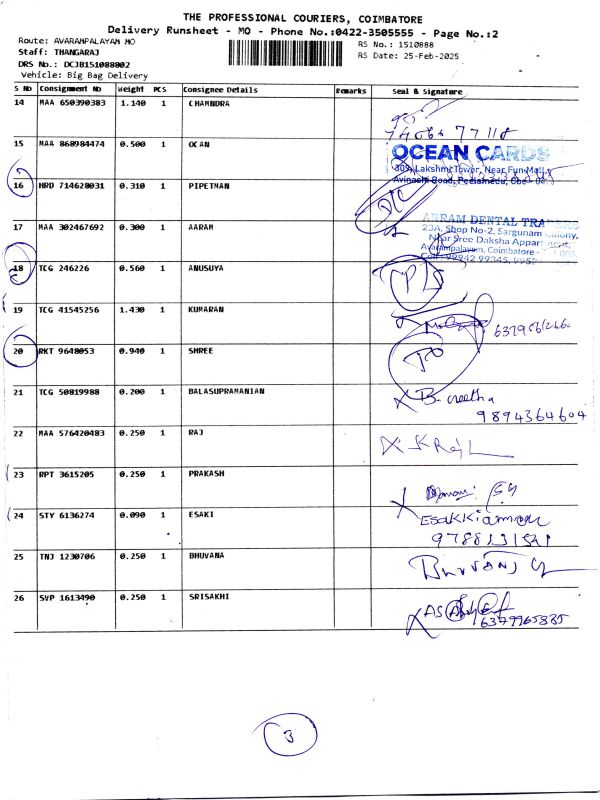 THE PROFESSIONAL COURIERS, COIMBATORE
Delivery Runsheet - MO - Phone No.:0422-3505555 - Page No.:2
Route: AVARAMPALAYAM MO
RS No.: 1510888
Staff: THANGARAJ
RS Date: 25-Feb-2025
DRS No.: DCJB151088802
Vehicle: Big Bag Delivery
S No Consignment No Weight PCS Consignee Details Remarks Seal & Signature
14 MAA 650390383 1.140 1 CHAMNDRA
15 MAA 868984474 0.500 1 OCAN
OCEAN CARDS
309, Lakshmi Tower, Near Fun Mall,
Avinachi Road, Peelamedu, Cbe
16 HRD 714628031 0.310 1 PIPETMAN
17 MAA 302467692 0.300 1 AARAM
DENTAL TRADERS
23A, Shop No-2, Sargunam Colony,
Near Sree Daksha Appartment,
Avarampalayam, Coimbatore -
Cell : 99942 99345,
18 TCG 246226 0.560 1 ANUSUYA
19 TCG 41545256 1.430 1 KUMARAN
20 RKT 9648053 0.940 1 SHREE
21 TCG 50819988 0.200 1 BALASUPRAMANIAN
9894364604
22 MAA 576420483 0.250 1 RAJ
23 RPT 3615205 0.250 1 PRAKASH
24 STY 6136274 0.090 1 ESAKI
25 TNJ 1230706 0.250 1 BHUVANA
26 SVP 1613490 0.250 1 SRISAKHI
3